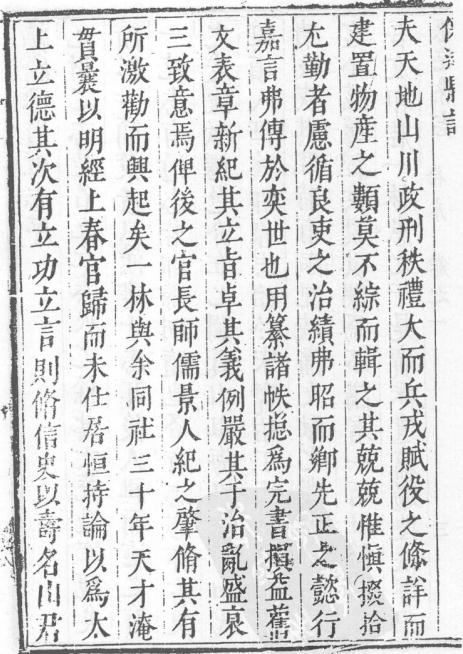 夫天地山川政刑秩禮大而兵戎賦役之條詳而
建置物産之類莫不綜而輯之其兢兢惟慎掇拾
尤勤者慮循良吏之治績弗昭而鄉先正之懿行
嘉言弗傳於奕世也用纂諸帙揔爲完書損益舊
文表章新紀其立旨卓其義例嚴其于治亂盛衰
三致意焉俾後之官長師儒景人紀之肇脩其有
所激勸而興起矣一林與余同社三十年天才淹
貫曩以明經上春官歸而未仕居恒持論以爲太
上立德其次有立功立言則脩信史以壽名山君